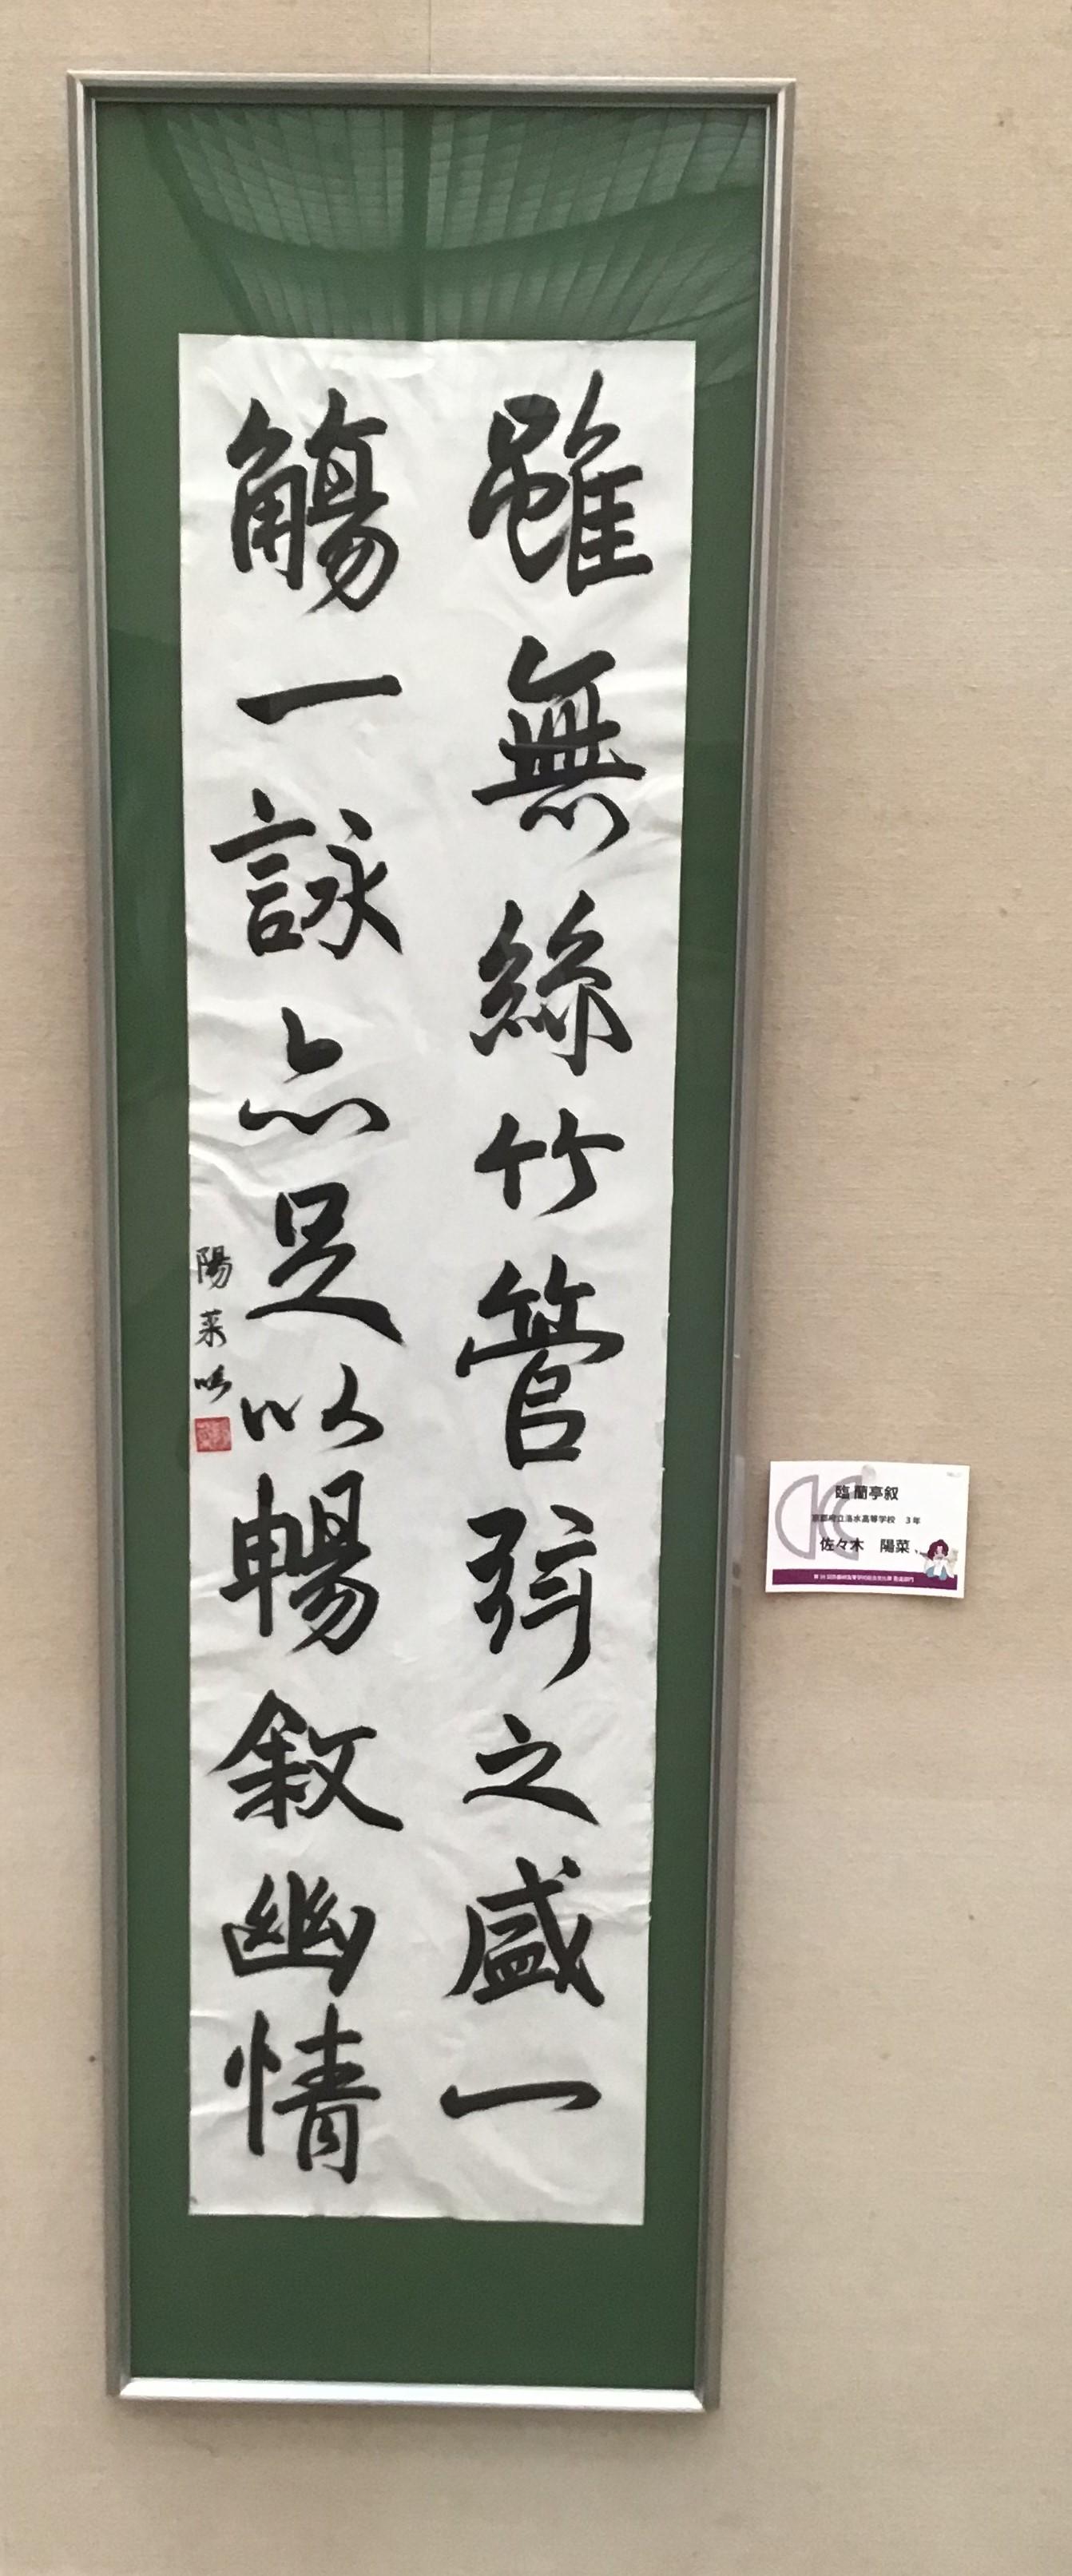 雖無絲竹管弦之盛一
觴一詠亦足以暢敘幽情
陽菜臨
臨 蘭亭叙
京都府立洛水高等学校 3年
佐々木 陽菜